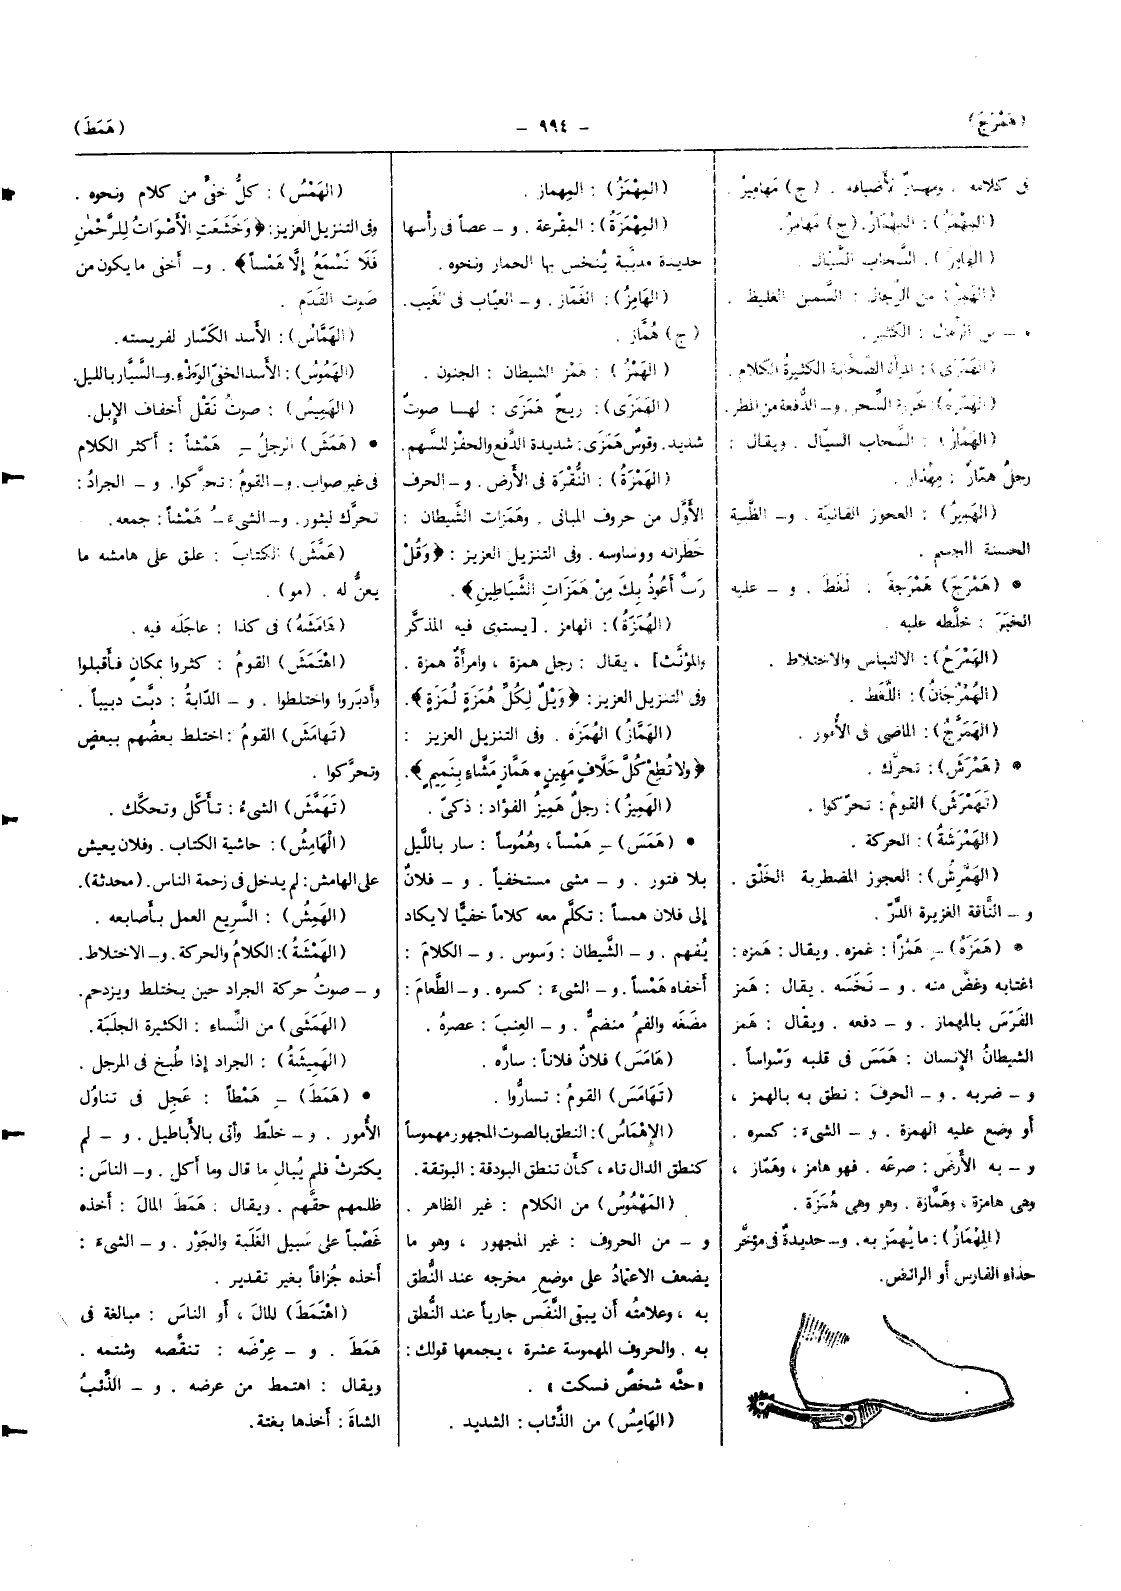 (هَمْرَجَ)
- ٩٩٤ -
(هَمَطَ)
فى كلامه . ومهمِرٌ لأضيافه . (ج) مَهامِيرُ .
(المِهْمَرُ) : المِهْمَارُ. (ج) مَهامِرُ.
(الهَامِرُ) . السَّحاب السَّيَّال .
(الهَمِرُ) من الرِّجال : السَّمين الغليظ .
و – من الرِّمال : الكثير .
(الهَمَرَى) : المرأة الصَّخَّابة الكثيرةُ الكلام .
(الهَمْرَةُ) : خرزة السِّحر. و – الدُّفعة من المطر.
(الهَمَّارُ) : السَّحاب السيّال . ويقال :
رجلٌ همَّارٌ : مِهْذار .
(الهَمِيرُ) : العجوز الفانيَة . و– الظَّبية
الحسنة الجسم .
• (هَمْرَجَ) هَمْرَجةً : لَغَطَ . و – عليه
الخبَرَ : خلَّطه عليه .
(الهَمْرَجُ) : الالتباس والاختلاط .
(الهُمْرُجَانُ) : اللَّغَط .
(الهَمَرَّجُ) : الماضى فى الأُمور .
• (هَمْرَشَ) : تحرَّك .
(تَهَمْرَشَ) القومُ : تحرّكوا .
(الهَمْرَشَةُ) : الحركة .
(الهَمَّرِشُ) : العجوز المضطربة الخَلْق .
و – النَّاقة الغزيرة الدَّرّ .
• (هَمَزَهُ) –ِ هَمْزًا : غمزه . ويقال : هَمزه :
اغتابه وغضَّ منه . و – نَخَسَه . يقال : هَمَز
الفَرَسَ بالمِهماز . و – دفعه . ويقال : هَمَز
الشيطانُ الإنسان : هَمَسَ فى قلبه وَسْواساً .
و – ضربه . و – الحرفَ : نطق به بالهمز ،
أو وضع عليه الهمزة . و – الشىءَ : كسره .
و – به الأرضَ : صرعَه . فهو هامز ، وهَمّاز ،
وهى هامزة ، وهَمَّازة . وهو وهى هُمَزَة .
(المِهْمَازُ) : ما يُهمَز به . و– حديدةٌ فى مؤخَّر
حذاء الفارس أو الرائض.
(المِهْمَزُ) : المِهماز .
(المِهْمَزَةُ) : المِقْرعة . و – عصاً فى رأْسها
حديدة مدبَّبة يُنخَس بها الحمار ونحوه .
(الهَامِزُ) : الغَمّاز . و – العيّاب فى الغَيب .
(ج) هُمّاز .
(الهَمْزُ) : هَمْز الشيطان : الجنون .
(الهَمَزَى) : ريحٌ هَمَزَى : لهـا صوتٌ
شديد . وقوسٌ هَمَزَى : شديدة الدَّفع والحفْز للسَّهم .
(الهَمْزَةُ) : النُّقْرَة فى الأرض . و – الحرف
الأوَّل من حروف المبانى . وهَمَزات الشَّيطان :
خَطَراته ووساوسه . وفى التنزيل العزيز : ﴿ وَقُلْ
رَبِّ أَعُوذُ بِكَ مِنْ هَمَزَاتِ الشَّيَاطِينِ ﴾ .
(الهُمَزَةُ) : الهامز . [يستوى فيه المذكَّر
والمؤنَّث] ، يقال : رجل همزة ، وامرأةٌ همزة .
وفى التنزيل العزيز : ﴿ وَيْلٌ لِكُلِّ هُمَزَةٍ لُمَزَةٍ ﴾ .
(الهَمَّازُ) الهُمَزَه . وفى التنزيل العزيز :
﴿ ولا تُطِعْ كُلَّ حَلَّافٍ مَهِينٍ * هَمَّازٍ مَشَّاءٍ بِنَمِيمٍ ﴾ .
(الهَمِيزُ) : رجلٌ هَمِيزُ الفؤاد : ذكىّ .
• (هَمَسَ) –ِ هَمْساً ، وهُمُوساً : سار باللَّيل
بلا فتور . و – مشى مستخفياً . و – فلانٌ
إلى فلان همساً : تكلَّم معه كلاماً خفيًّا لا يكاد
يُفهم . و – الشَّيطان : وَسوس . و – الكلامَ :
أخفاه هَمْساً . و – الشىءَ : كسره . و – الطَّعامَ :
مضَغَه والفمُ منضمٌّ . و – العِنبَ : عصرهُ .
(هَامَسَ) فلانٌ فلاناً : سارَّه .
(تَهَامَسَ) القومُ : تسارُّوا .
(الإهْمَاسُ) : النطق بالصوت المجهور مهموساً
كنطق الدال تاء ، كأن تنطق البودقة : البوتقة .
(المَهْمُوسُ) من الكلام : غير الظاهر .
و – من الحروف : غير المجهور ، وهو ما
يضعف الاعتمادُ على موضعِ مخرجه عند النُّطق
به ، وعلامتُه أن يبقى النَّفَس جارياً عند النُّطق
به . والحروف المهموسة عشرة ، يجمعها قولك :
«حثّه شخصٌ فسكت » .
(الهَامِسُ) من الذِّئاب : الشديد .
(الهَمْسُ) : كلُّ خفىٍّ من كلام ونحوه .
وفى التنزيل العزيز : ﴿ وَخَشَعَتِ الْأَصْوَاتُ لِلرَّحْمٰنِ
فَلَا تَسْمَعُ إلَّا هَمْساً ﴾ . و– أخفى ما يكون من
صَوت القَدَم .
(الهَمَّاسُ) : الأسد الكَسّار لفريسته .
(الهَمُوسُ) : الأسد الخفىّ الوَطْءِ. و– السَّيَّار بالليل.
(الهَمِيسُ) : صوتُ نَقْل أخفاف الإبل .
• (هَمَشَ) الرجلُ –ِ هَمْشاً : أكثر الكلام
فى غير صواب . و– القومُ : تحرَّكوا . و – الجرادُ :
تحرَّك ليثور . و– الشىءَ –ُ هَمْشاً : جمعه .
(هَمَّشَ) الكتابَ : علق على هامشه ما
يعنُّ له . (مو) .
(هَامَشَهُ) فى كذا : عاجَلَه فيه .
(اهْتَمَشَ) القومُ : كثروا بمكانٍ فأقبلوا
وأدبَروا واختلطوا . و – الدّابةُ : دبَّت دبيباً .
(تَهامَشَ) القومُ : اختلط بعضُهم ببعضٍ
وتحرَّكوا .
(تَهَمَّشَ) الشىءُ : تأكَّل وتحكَّك .
(الْهَامِشُ) : حاشية الكتاب . وفلان يعيش
على الهامش : لم يدخل فى زحمة الناس . (محدثة) .
(الهَمِشُ) : السَّريع العمل بأصابعه .
(الهَمْشَةُ) : الكلامُ والحركة . و– الاختلاط.
و – صوتُ حركة الجراد حين يختلط ويزدحم .
(الهَمَشَى) من النِّساء : الكثيرة الجلَبَة .
(الهَمِيشَةُ) : الجراد إذا طُبخ فى المِرجل .
• (هَمَطَ) –ِ هَمْطاً : عَجِل فى تناوُل
الأُمور . و – خلّط وأتى بالأباطيل . و – لم
يكترثْ فلم يُبالِ ما قال وما أكل . و– الناسَ :
ظلمهم حقَّهم . ويقال : هَمَطَ المالَ : أخذه
غَصْباً على سَبيل الغَلَبة والجَوْر . و – الشىءَ :
أخذه جُزافاً بغير تقدير .
(اهْتَمَطَ) المالَ ، أو الناسَ : مبالغة فى
هَمَطَ . و – عِرْضَه : تنقَّصه وشتمه .
ويقال : اهتمط من عرضه . و – الذِّئبُ
الشاةَ : أخذها بغتة .